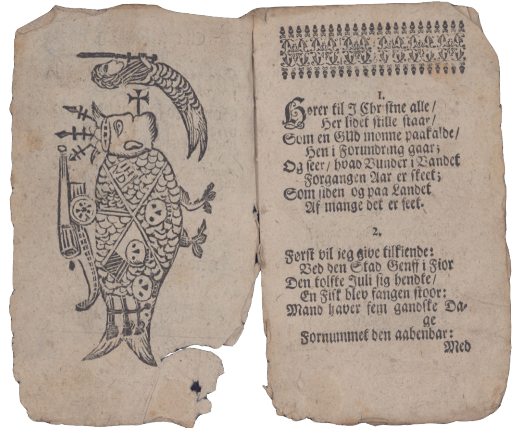 1.
Hører til I Christne alle/
Her lidet stille staar/
Som en GUd monne paakalde/
Hen i Forundring gaar;
Og seer/ hvad Vunder i Vandet
Forgangen Aar er skeet;
Som siden og paa Landet
Af mange det er seet.
2.
Først vil jeg give tilkiende:
Ved den Stad Genff i Fior
Den tolfte Juli sig hendte/
En Fisk blev fangen stoor:
Mand haver fem gandske Da-
ge
Fornummet den aabenbar:
Med